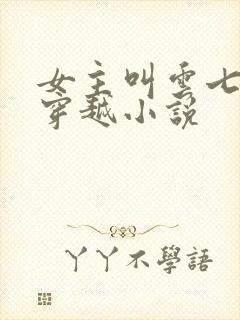 女主叫雲七
穿越小說
丫丫不學語